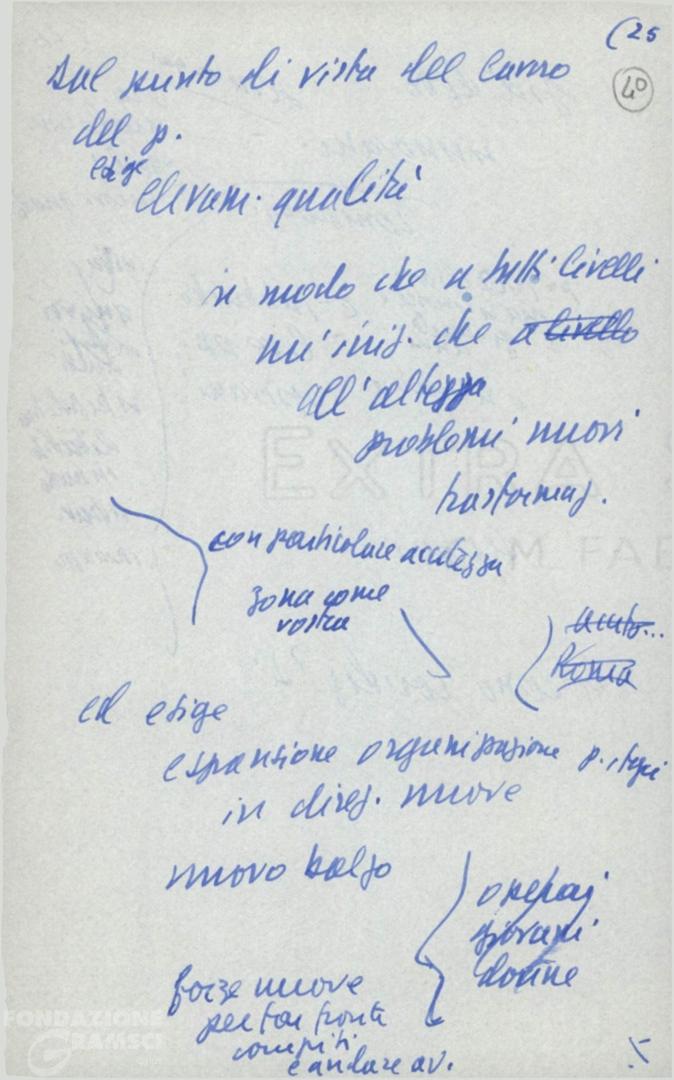 (25
40
Dal punto di vista del lavoro
del p.
esige
elevam. qualità
in modo che a tutti livelli
un' iniz. che a livello
all'altezza
problemi nuovi
trasformaz.
con particolare acutezza
zona come
vostra
Roma
ed esige
espansione organizzazione p.
in direz. nuove
nuovo balzo
operai
giovani
donne
forze nuove
per far fronte
compiti
e andare av.
EXTRA
M FAB
FONDAZIONE
GRAMSCI